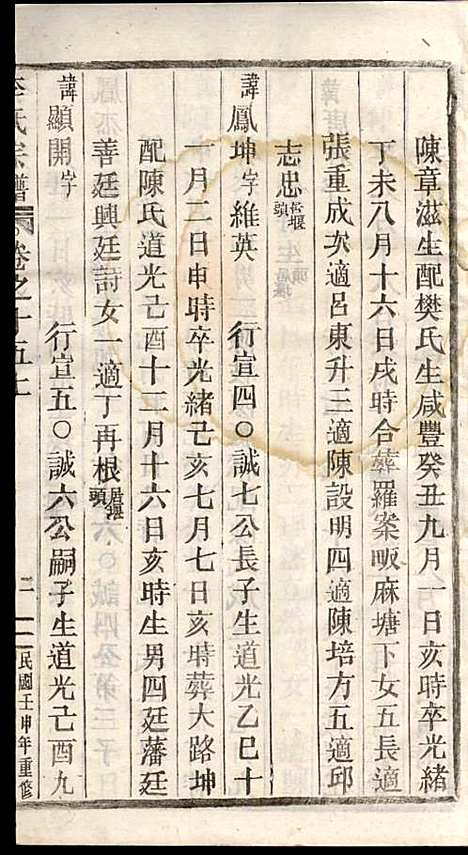 陳章滋生配樊氏生咸豐癸丑九月一日亥時卒光緒
丁未八月十六日戌時合葬羅案畈麻塘下女五長適
張重成次適呂東升三適陳設明四適陳培方五適邱
志忠 堰頭
諱鳳坤字維英 行宣四〇誠七公長子生道光乙巳十
一月二日申時卒光緒己亥七月七日亥時葬大路坤
配陳氏道光己酉十二月十六日亥時生男四廷藩廷
善廷興廷詩女一適丁再根 堰頭
諱顯開字 行宣五〇誠六公嗣子生道光己酉九
李氏宗譜 卷之十五上 二 民國壬申年重修